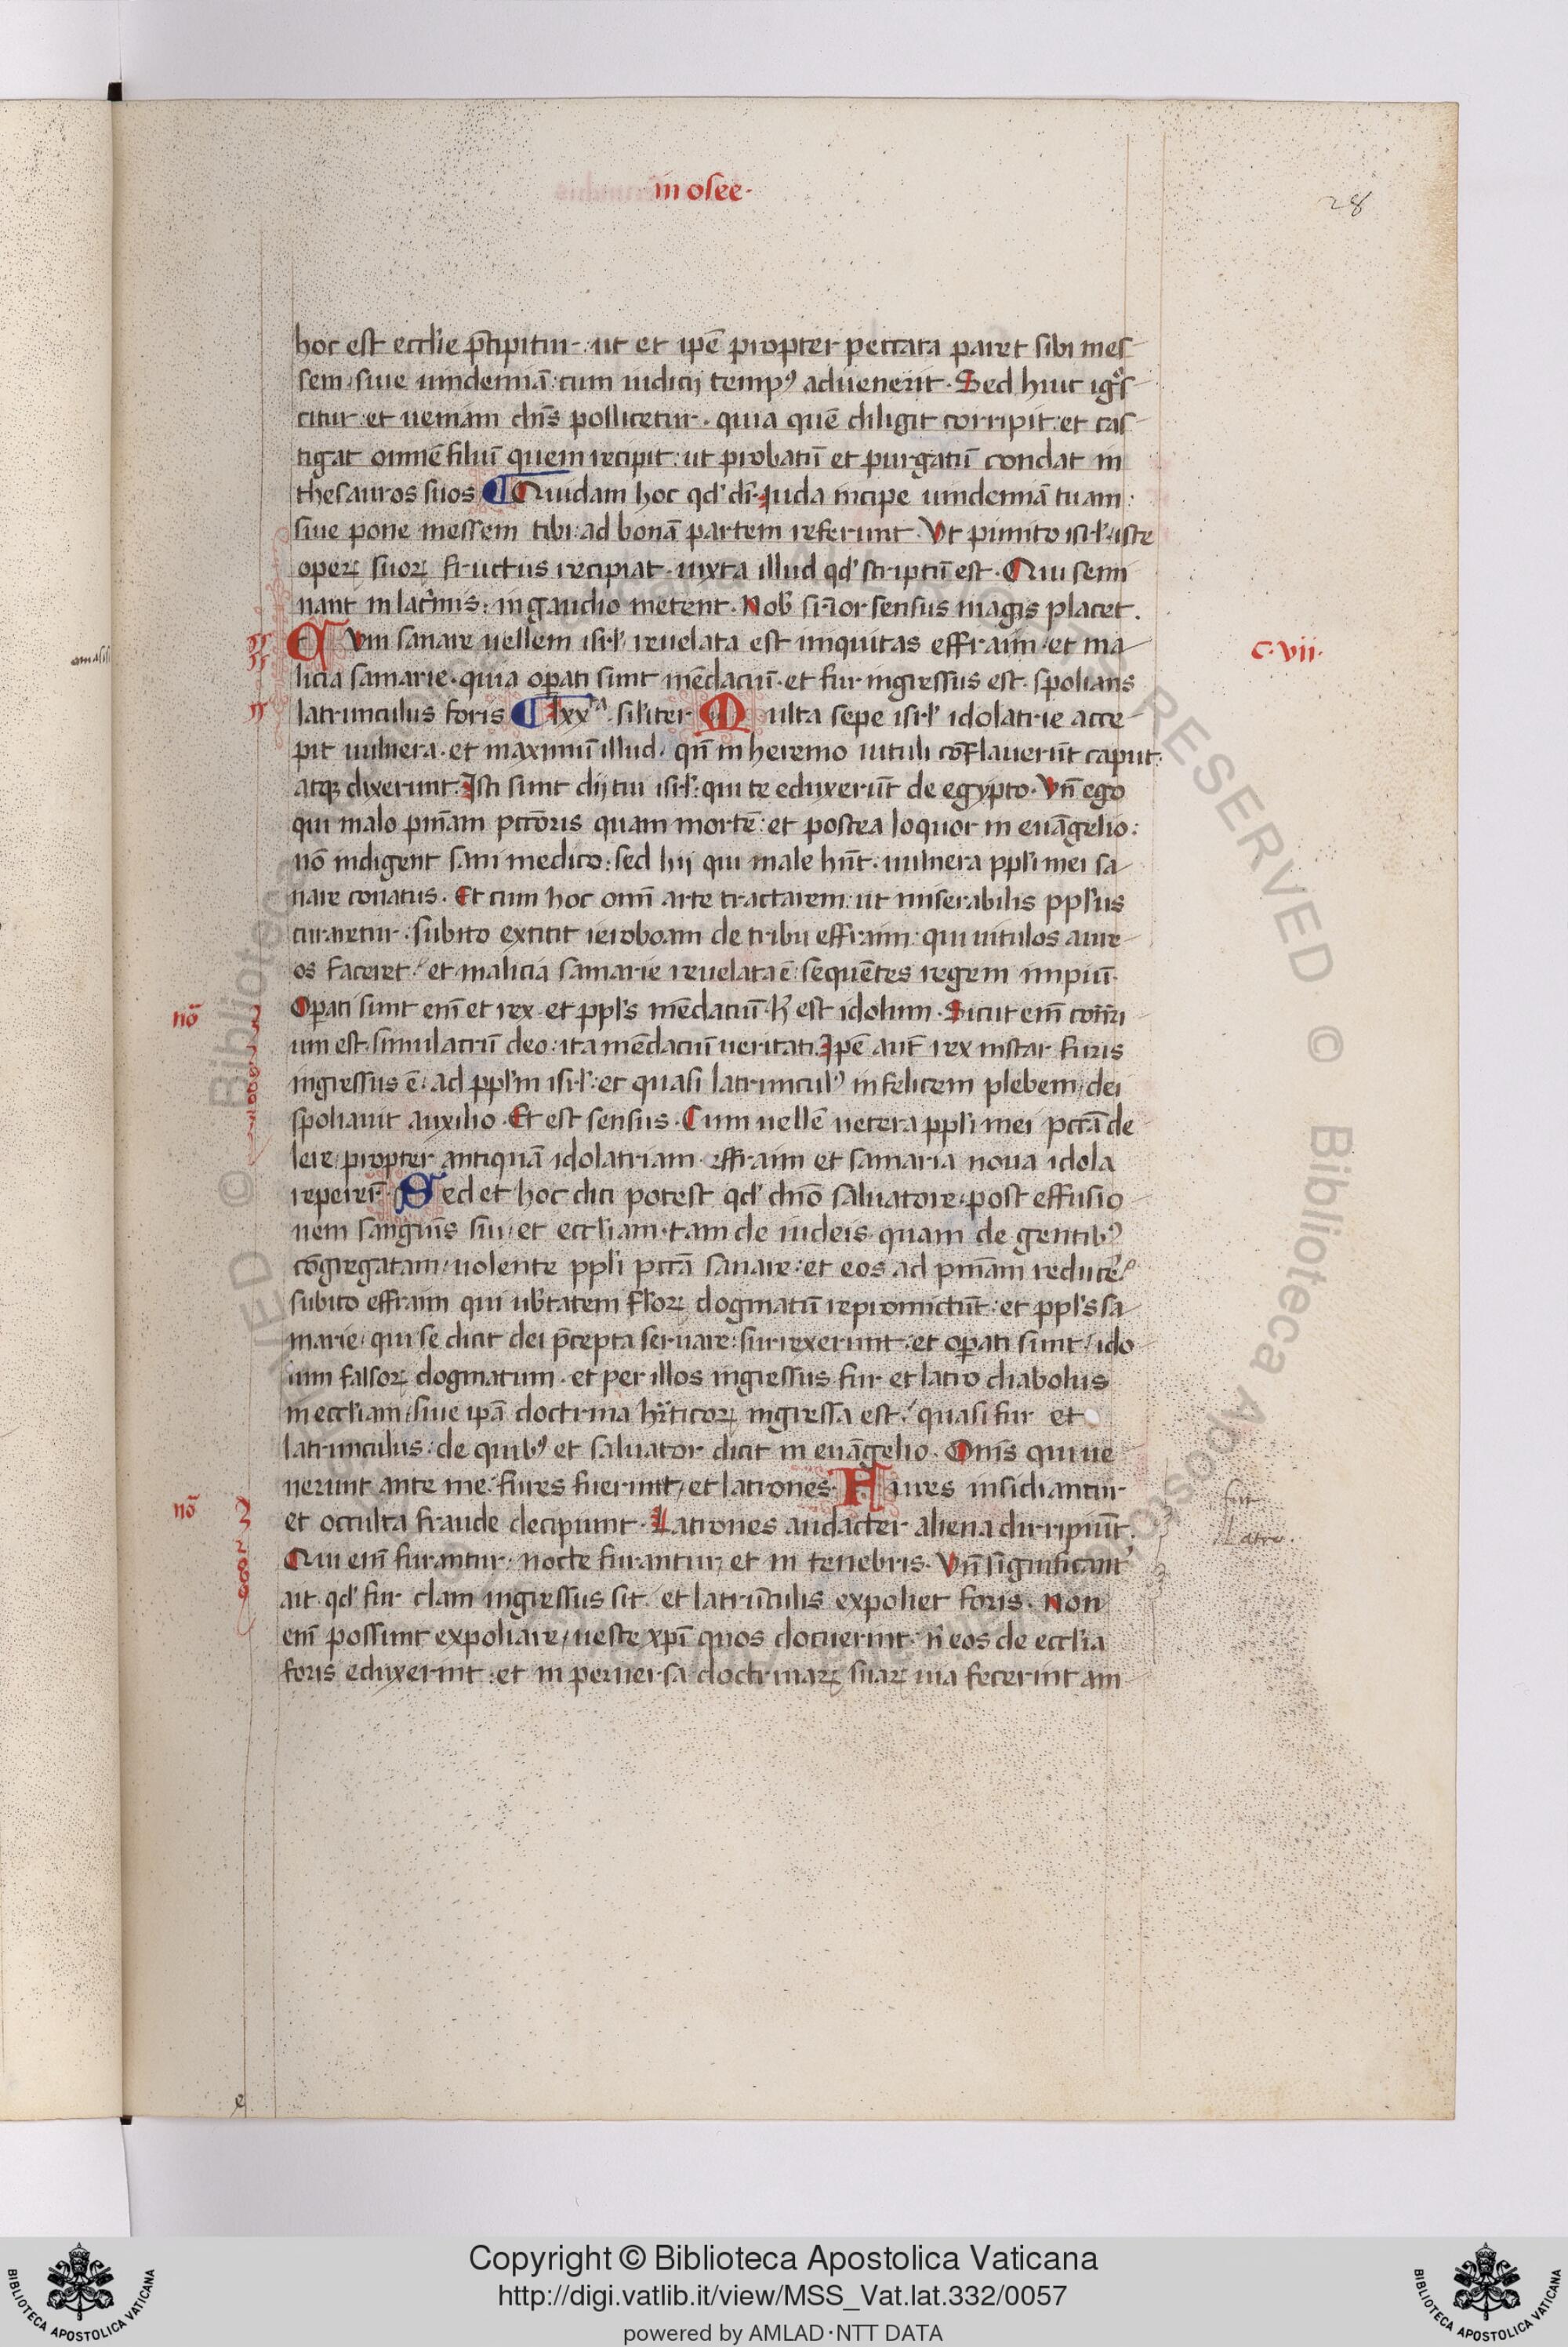 in osee·
28
hoc est eccl'ie p̄cipitur· ut et ipē propter peccata paret sibi mes
sem siue uindemiā: cum iudicij temp⁹ aduenerit· Sed huic ig°s
citur: et ueniam dn̄s pollicetur· quia quē diligit corripit: et cas
tigat omnē filiū quem recipit: ut probatū et purgatū condat in
thesauros suos ¶ Quidam hoc qd' dr̄· iuda incipe uindemiā tuam:
siue pone messem tibi: ad bonā partem referunt· Vt punito isrl' iste
operꝝ suorꝝ fructus recipiat· iuxta illud qd' scriptū est· Qui semi
nant in lac'mis: in gaudio metent· Nob' sup'ior sensus magis placet.
C·vii·
Cvm sanare uellem isrl' reuelata est iniquitas effraim· et ma
licia samarie· quia oꝑati sunt mēdaciū· et fur ingressus est· spolians
latrunculus foris ¶ lxxᵃ· sil'iter Multa sepe isrl' idolatrie acce
pit uulnera· et maximū illud· qn̄ in heremo uituli cōflauerūt caput:
atqꝫ dixerunt· Isti sunt dij tui isrl': qui te eduxerūt de egypto· Vn̄ ego
qui malo pn̄iam pctōris quam mortē: et postea loquor in euāgelio:
nō indigent sani medico: sed hij qui male hn̄t· uulnera ppl'i mei sa
nare conatus· Et cum hoc omī arte tractarem: ut miserabilis ppl'us
curaretur: subito extitit ieroboam de tribu effraim: qui uitulos aure
os faceret: et malicia samarie reuelata ē: sequētes regem impiū·
nō
Oꝑati sunt enī et rex et ppl's mēdaciū· h' est idolum· Sicut enī cont̄ri
um est simulacrū deo: ita mēdaciū ueritati· Ipē aut̄ rex instar furis
ingressus ē: ad ppl'm isrl': et quasi latruncul⁹ infelicem plebem dei
spoliauit auxilio· Et est sensus· Cum uellē uetera ppl'i mei pctā de
lere propter antiquā idolatriam· effraim et samaria noua idola
repereꝝ· Sed et hoc dici potest qd' dn̄o saluatore post effusio
nem sanguis sui et eccl'iam tam de iudeis quam de gentib⁹
cōgregatam uolente ppl'i pctā sanare: et eos ad pn̄iam reducē'
subito effraim qui ub'tatem florꝝ dogmatū repromictūt: et ppl's sa
marie qui se dicit dei p̄cepta seruare: surrexerunt: et oꝑati sunt ido
lum falsorꝝ dogmatum· et per illos ingressus fur et latro diabolus
in eccl'iam siue ipā doctrina hr̄ticorꝝ ingressa est: quasi fur et
latrunculus: de quib⁹ et saluator dicit in euāgelio· Om̄s qui ue
nerunt ante me: fures fuerunt et latrones· Fures insidiantur
fur
nō
et occulta fraude decipiunt· Latrones audacter aliena dirripiūt.
Latro·
Qui enī furantur: nocte furantur et in tenebris· Vn̄ significant'
ait qd' fur clam ingressus sit: et latrūculis expoliet foris· Non
enī possunt expoliare ueste xp̄i quos docuerint: n̄ eos de eccl'ia
foris eduxerint: et in peruersa doctrinarꝝ suarꝝ uia fecerint am
e
Copyright © Biblioteca Apostolica Vaticana
http://digi.vatlib.it/view/MSS_Vat.lat.332/0057
powered by AMLAD·NTT DATA
BIBLIOTECA APOSTOLICA VATICANA
BIBLIOTECA APOSTOLICA VATICANA